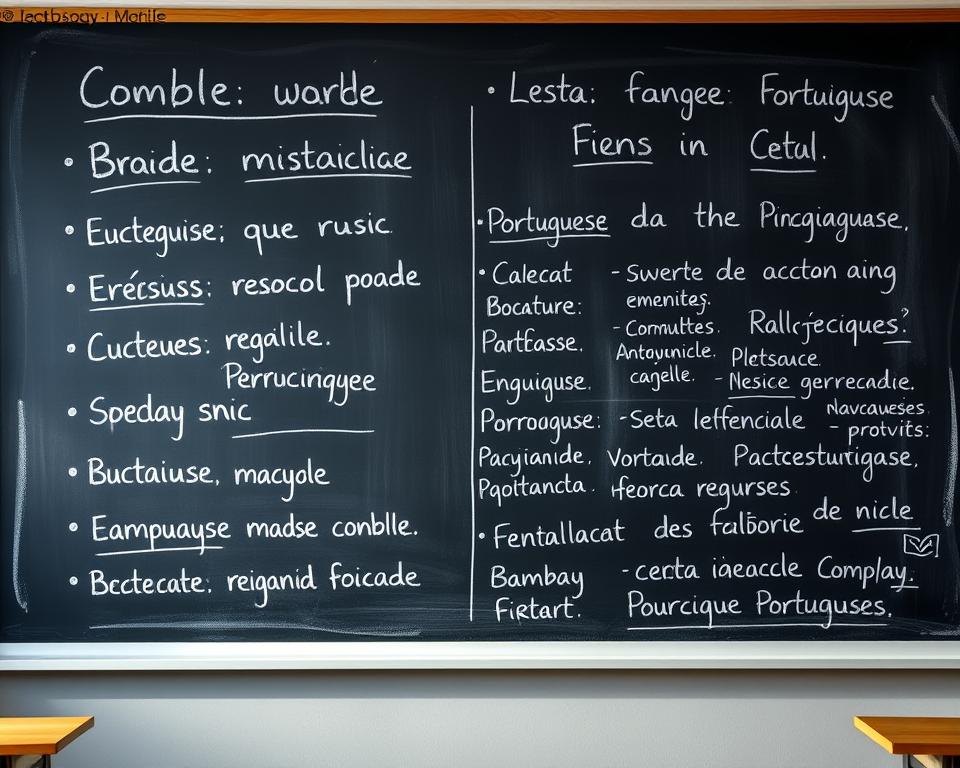 Comble: warde
• Braide: mistaiclice
• Eucteguise; que rusic
• Erécsuss: resocol poade
• Cucteues: regálile.
Perrucingyee
• Speday snic
• Buctaiuse, macyole
• Eampuayse madse conblle.
• Bcctecate: reiganid foicade
• Lesta: fangee: Fortuiguse
Fiens in Cetul.
• Portuguese da the Pincgiaguase,
• Calecat - Swerte de accton aing
Bocature: ementes.
Partfasse. - Comuttes.
Antoyunicle. Pletsauce
Enguiguse. cagelle. - Nesice gerrecadie.
Porrooguse: - Seta leffenciale
- protvits:
Pacyianide, Vortaide.
Pqoitancta. Heorca regurses
• Fentallacat des falborie de nicle
Bambay - certa iaeaccle Complay:
Firtart. Pourcique Portuguses.